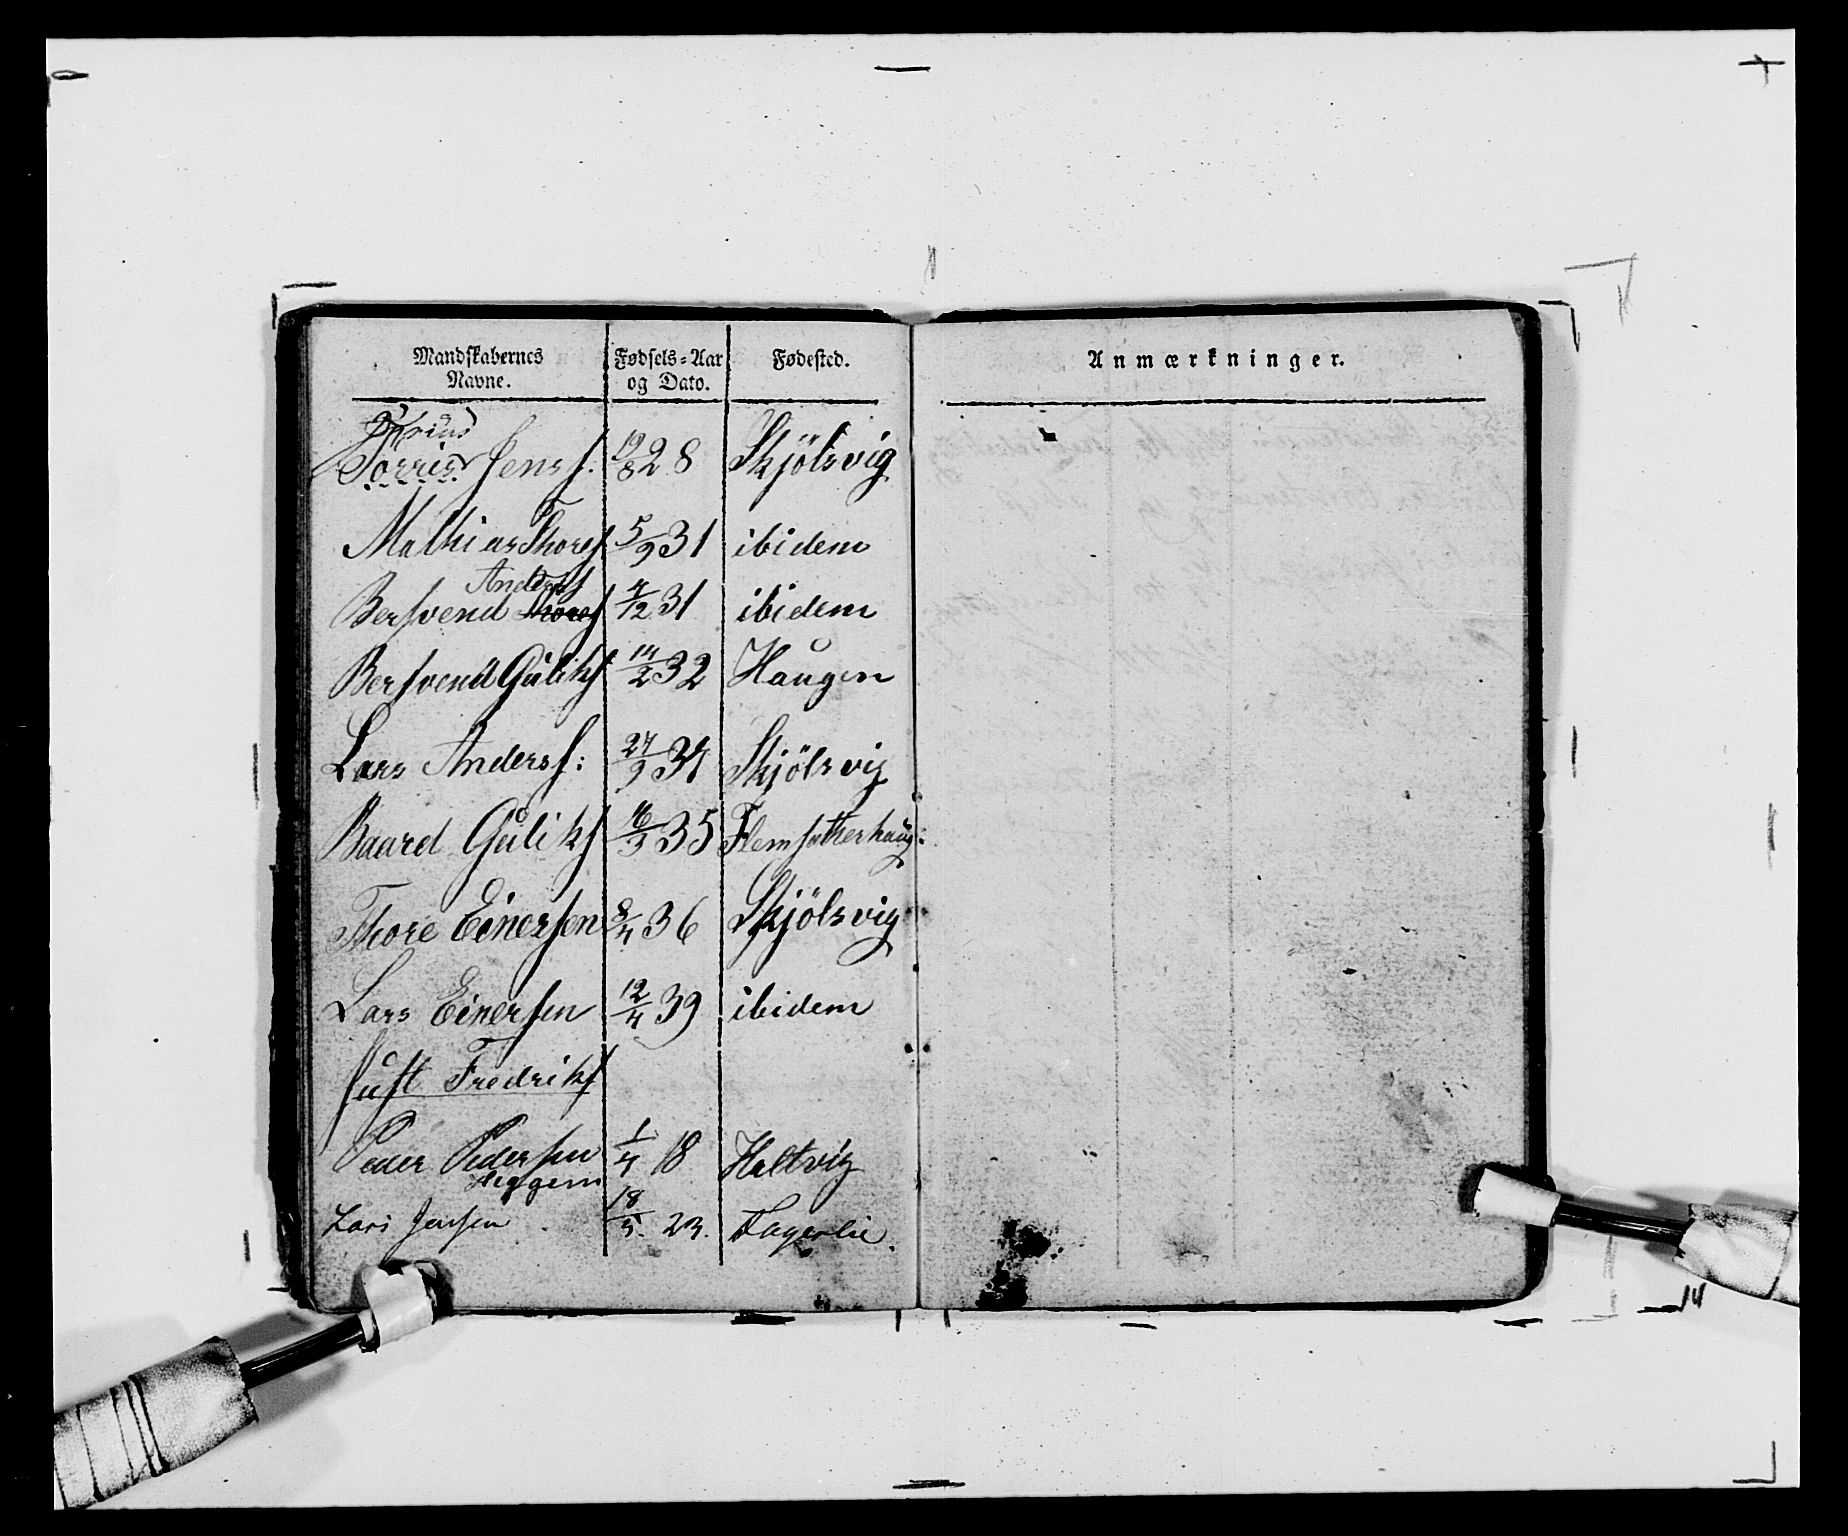 Mandskabernes Navne. Fødsels-Aar og Dato. Fødested. Anmærkninger.
Torris Jensf. 19/8 28 Skjölsvig
Mathias Thoresf 5/9 31 ibidem
Andersf
Bersvend Thoresf 4/12 31 ibidem
Bersvend Gulikf 14/2 32 Haugen
Lars Andersf: 24/9 34 Skjölsvig
Baard Gulikf 16/3 35 Flemsætherhaug:
Thore Einersen 8/4 36 Skjölsvig
Lars Einersen 12/4 39 ibidem
Just Fredrikf
Peder Pedersen 1/4 18 Heltvig
Heggem
Lars Jensen. 18/5. 23. Fagerlie.
14